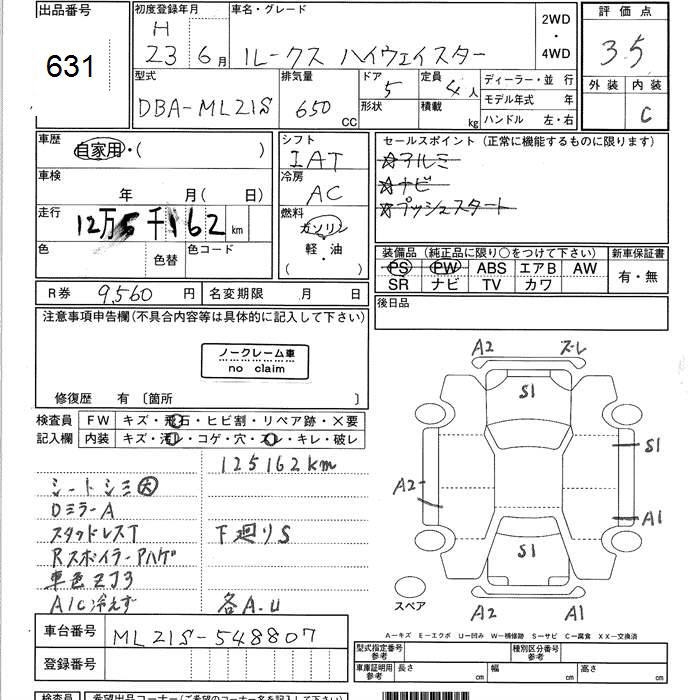 出品番号
631
初度登録年月
H
23 6月
車名・グレード
ルークス ハイウェイスター
2WD
・
4WD
評価点
3.5
外装 内装
C
型式
DBA-ML21S
排気量
650 CC
ドア 5
形状
定員 4人
積載 kg
ディーラー・並 行
モデル年式 年
ハンドル 左・右
車歴
自家用・( )
車検
年 月( 日)
走行
12万5千162km
色
色替
色コード
シフト
IAT
冷房
AC
燃料
ガソリン
軽・油
( )
セールスポイント(正常に機能するものに限ります)
☆アルミ
☆ナビ
☆プッシュスタート
装備品(純正品に限り○をつけて下さい)
PS PW ABS エアB AW
SR ナビ TV カワ
新車保証書
有・無
後日品
R券 9,560円
名変期限 月 日
注意事項申告欄(不具合内容等は具体的に記入して下さい)
ノークレーム車
no claim
修復歴 有〔箇所 〕
検査員
記入欄
FW キズ・飛石・ヒビ割・リペア跡・×要
内装 キズ・汚レ・コゲ・穴・スレ・キレ・破レ
125162km
シートシミ大
DミラーA
スタッドレスT
下廻りS
RスポイラーAハゲ
車色ZJ3
A/C冷えず
各A.U
A2 ズレ
S1
S1
A2
A1
S1
A2 A1
スペア
A－キズ E－エクボ U－凹み W－補修跡 S－サビ C－腐食 XX－交換済
車台番号 ML21S-548807
登録番号
型式指定番号
参考
種別区分番号
参考
車庫証明用
参考
長さ cm 幅 cm 高さ cm
検査員
希望出品コーナー(ご希望のコーナー名を記入下さい)